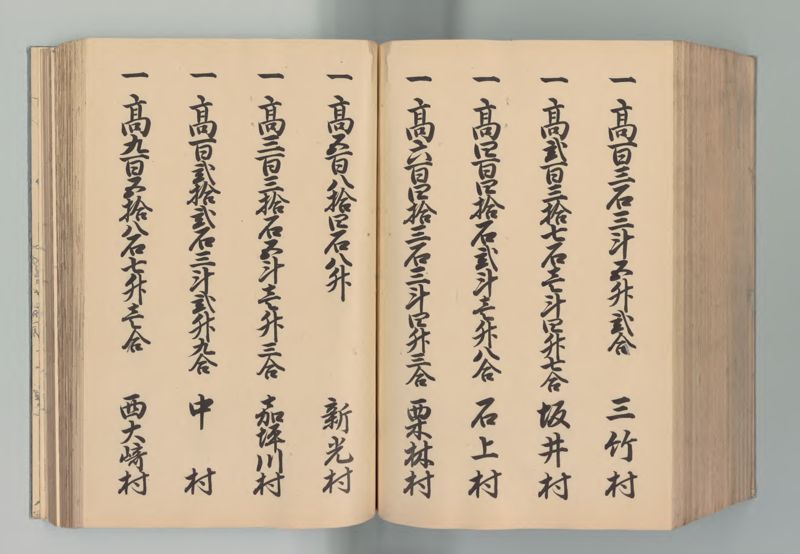 一 高百三石三斗五升弐合 三竹村
一 高弐百三拾七石壱斗四升七合 坂井村
一 高四百四拾石弐斗壱升八合 石上村
一 高六百四拾三石三斗四升三合 栗林村
一 高五百八拾四石八升 新光村
一 高三百三拾石五斗壱升三合 嘉坪川村
一 高百弐拾弐石三斗弐升九合 中村
一 高九百五拾八石七升壱合 西大崎村